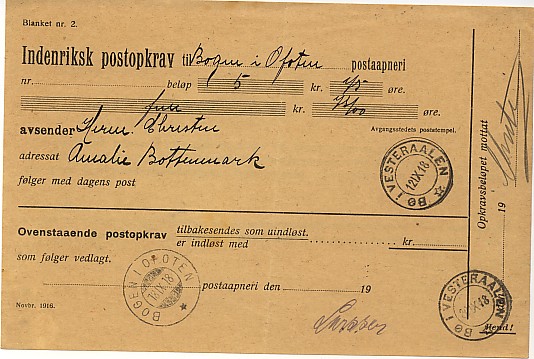 Blanket nr. 2.
Indenriksk postopkrav til Bogen i Ofoten postaapneri
nr. beløp 5 kr. øre.
kr. øre.
avsender Herm. Christen
Avgangsstedets poststempel.
adressat Amalie Bottenmark
følger med dagens post
BØ I VESTERAALEN
12 IX 18
Opkravsbeløpet mottat
19
Ovenstaaende postopkrav tilbakesendes som uindløst.
er indløst med kr.
som følger vedlagt.
BOGEN I OFOTEN
IX 18
postaapneri den 19
BØ I VESTERAALEN
IX 18
Novbr. 1916.
Vend!